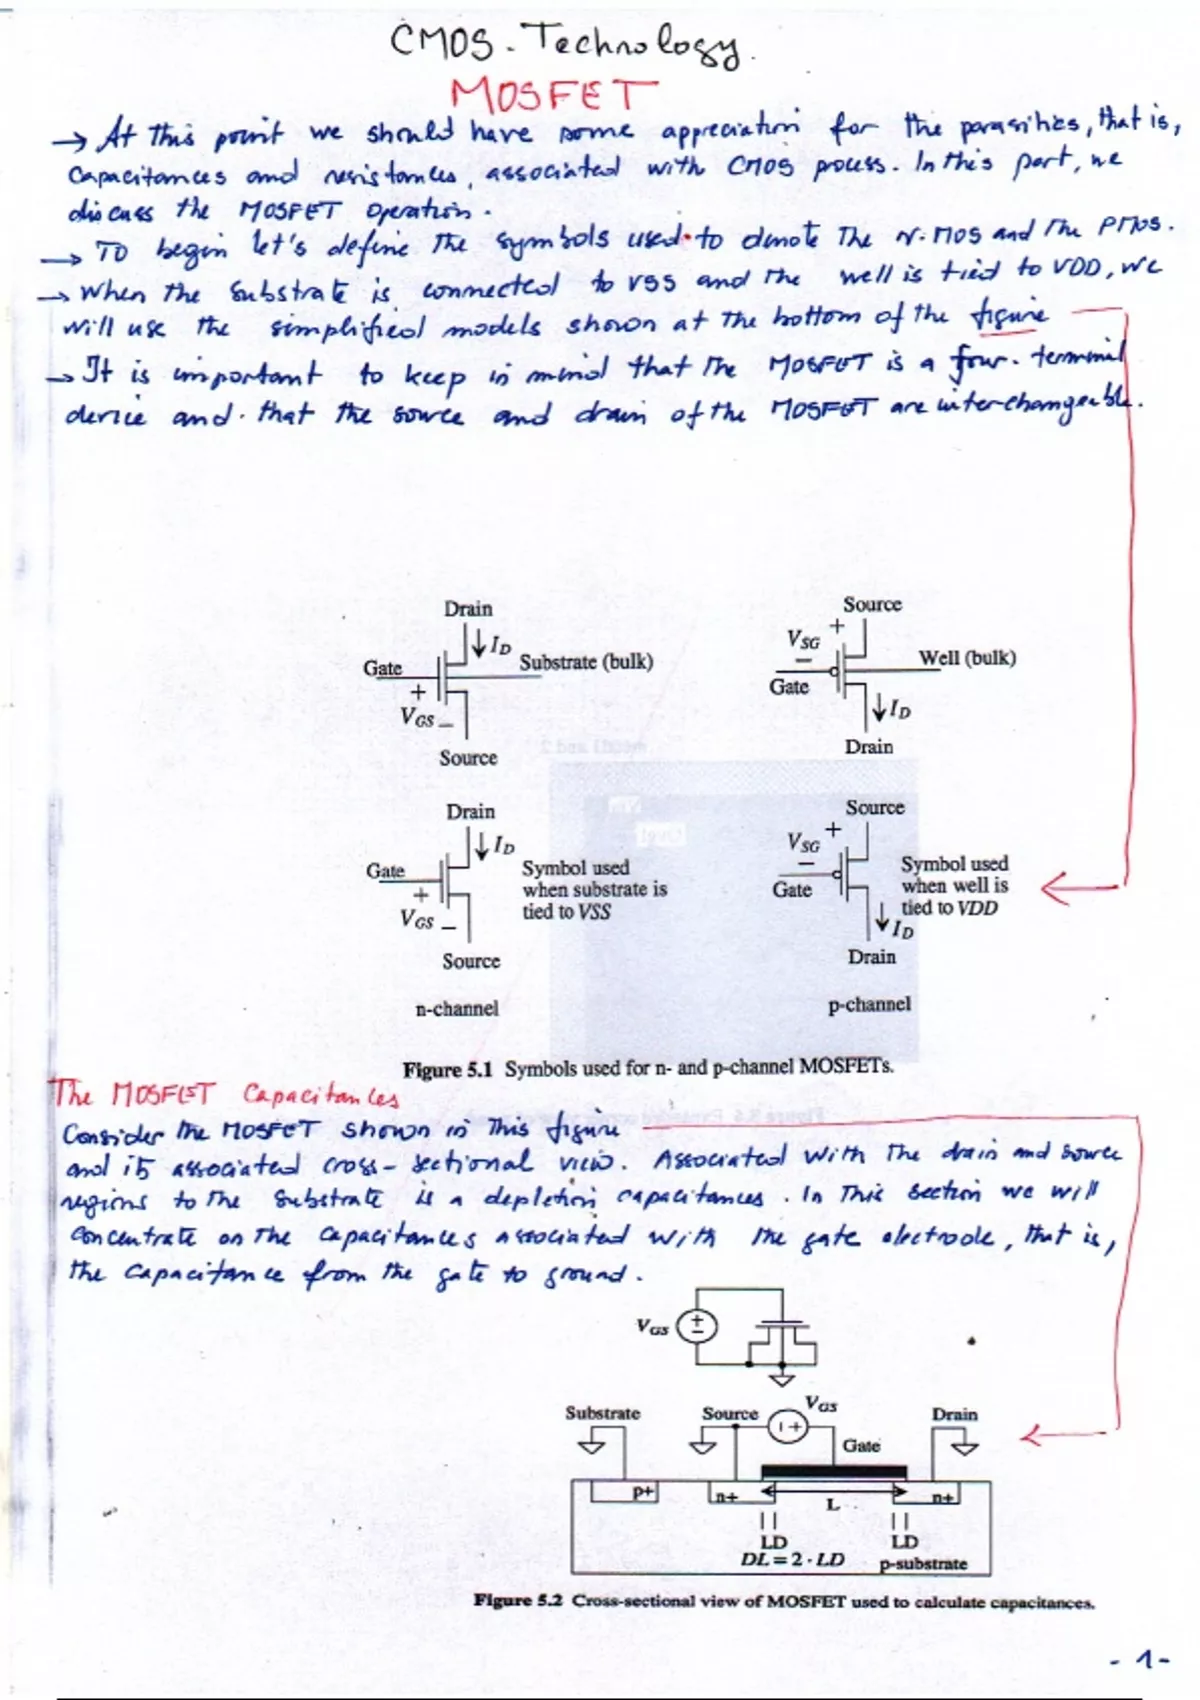 CMOS - Technology.
MOSFET
→ At this point we should have some appreciation for the parasitics, that is,
Capacitances and resistances, associated with CMOS process. In this part, we
discuss the MOSFET Operation.
→ TO begin let's define the symbols used to denote The N.MOS and The PMOS.
→ When the Substrate is connected to VSS and the well is tied to VDD, we
will use the simplified models shown at the bottom of the figure
→ It is important to keep in mind that the MOSFET is a four-terminal
device and that the source and drain of the MOSFET are interchangeable.
Drain
ID
Gate
Substrate (bulk)
+
VGS
−
Source
Source
+
VSG
−
Gate
Well (bulk)
ID
Drain
Drain
ID
Gate
+
VGS
−
Source
Symbol used
when substrate is
tied to VSS
Source
+
VSG
−
Gate
Symbol used
when well is
tied to VDD
ID
Drain
n-channel
p-channel
Figure 5.1 Symbols used for n- and p-channel MOSFETs.
The MOSFET Capacitances
Consider the MOSFET shown in This figure
and its associated cross-sectional view. Associated with The drain and source
regions to the Substrate is a depletion capacitances. In This Section we will
Concentrate on The Capacitances associated with the gate electrode, that is,
the capacitance from the gate to ground.
VGS
+
−
Substrate
Source
VGS
Drain
+
Gate
p+
n+
L
n+
LD
LD
DL = 2 · LD
p-substrate
Figure 5.2 Cross-sectional view of MOSFET used to calculate capacitances.
- 1 -